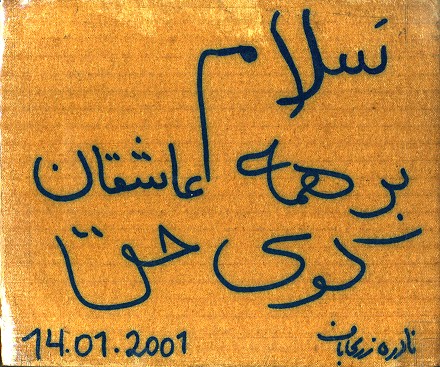 سلام
بر همه عاشقان
کوی حق
14.01.2001
نادره